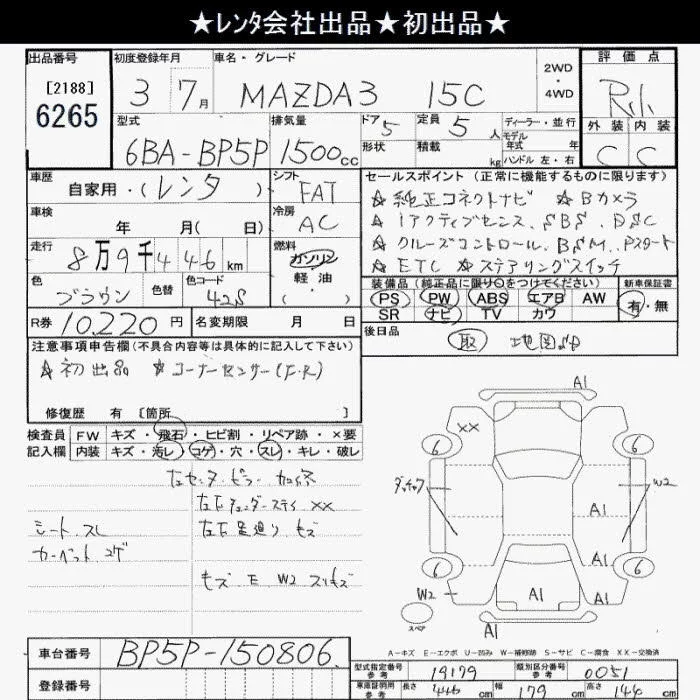 ★レンタ会社出品★初出品★
出品番号
[2188]
6265
初度登録年月
3 7月
車名・グレード
MAZDA3 15C
2WD
・
4WD
評価点
外装 内装
C C
型式
6BA-BP5P
排気量
1500cc
ドア 5
形状
定員 5人
積載 kg
ディーラー・並行
モデル
年式 年
ハンドル 左・右
車歴
自家用・(レンタ)
シフト
FAT
車検
年 月( 日)
冷房
AC
走行
8万9千446km
燃料
ガソリン
軽油
( )
色
ブラウン
色替
色コード
42S
R券 10,220円
名変期限 月 日
セールスポイント(正常に機能するものに限ります)
☆純正コネクトナビ ☆Bカメラ
☆iアクティブセンス、SBS、DSC
☆クルーズコントロール、BSM、Pスタート
☆ETC ☆ステアリングスイッチ
装備品(純正品に限り○をつけてください)
PS PW ABS エアB AW
SR ナビ TV カワ
新車保証書
有・無
後日品
取 地図SD
注意事項申告欄(不具合内容等は具体的に記入して下さい)
☆初出品 ☆コーナーセンサー(F.R)
修復歴 有[箇所 ]
検査員
記入欄
FW キズ・飛石・ヒビ割・リペア跡・×要
内装 キズ・汚レ・コゲ・穴・スレ・キレ・破レ
左センターピラー
××
シート スレ
カーペット コゲ
左右足廻り キズ
キズ E W2 スリキズ
A1
××
6 6
W2
A1
A1
6 6
W2
A1
A1
スペア
A1
A-キズ E-エクボ U-凹み W-補修跡 S-サビ C-腐食 XX-交換済
車台番号 BP5P-150806
登録番号
型式指定番号
参考
19179
類別区分番号
参考
0051
車庫証明用
参考
長さ 446 cm
幅 179 cm
高さ 144 cm